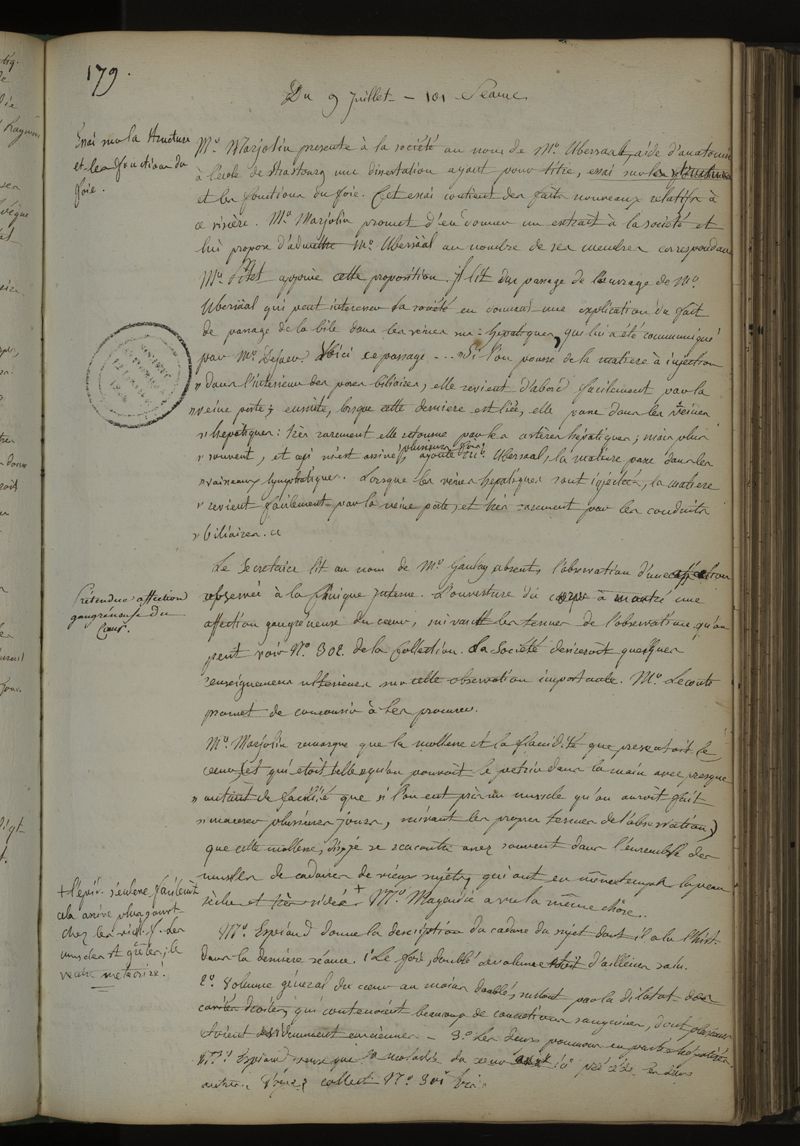 179.
Du 9 Juillet – 101 Séance.
Essai sur la structure
et les fonctions du
foie.
Mr. Marjolin presente à la société au nom de Mr. Ubersaal, aide d'anatomie
à l'école de Strasbourg une dissertation ayant pour titre, essai sur la structure
et les fonctions du foie. Cet essai contient des faits nouveaux relatifs à
ce viscère. Mr. Marjolin promet d'en donner un extrait à la société et
lui propose d'admettre Mr. Ubersäal au nombre de ses membres correspondans
Mr. appuie cette proposition. Il lit du passage de l'ouvrage de Mr.
Ubersäal qui peut interesser la société en donnant une explication du fait
de passage de la bile dans les veines sus-hepatiques, qui lui a été communiqué
par Mr. Voici ce passage ... "Si l'on pousse de la matiere à injection
" dans l'interieur des pores biliaires, elle revient d'abord facilement par la
" veine porte; ensuite, lorsque cette derniere est liée, elle passe dans les veines
" hepatiques: très rarement elle retourne par les artères hépatiques; mais plus
" souvent, et ceci m'est arrivé plusieurs fois, ajoute Mr. Ubersaal, la matiere passe dans les
" vaisseaux lymphatiques. Lorsque les veines hepatiques sont injectées, la matiere
" revient facilement par la veine porte, et très rarement par les conduits
" biliaires. "
Prétendue affection
gangréneuse du
Cœur.
Le Secretaire lit au nom de Mr. absent, l'observation d'une affection
observée à la Clinique interne. L'ouverture du corps a montré une
affection gangréneuse du cœur, suivant les termes de l'observation qu'on
peut voir No. 302. de la Collection. La Société desireroit quelques
renseignemens ulterieurs sur cette observation importante. Mr. Lecomte
promet de concourir à les procurer.
Mr. Marjolin remarque que la mollesse et la flacidité que presentoit le
cœur (et qui étoit telle qu'on pouvoit le petrir dans la main avec presque
" autant de facilité que si l'on eut pris un muscle qu'on auroit fait
" macerer plusieurs jours, suivant les propres termes de l'observation)
que cette mollesse, dis-je se rencontre assez souvent dans l'ensemble des
muscles de cadavres de vieux sujets, qui ont en même temps la peau
sèche et très ridée + Mr. Magendie a vu la même chose.
+ l'épid. s'enleve facilement
cela arrive plus souvent
chez les
muscles
ventre meteorisé.
Mr. Espiaud donne la description du cadavre du sujet dont il a lu l'hist.
dans la derniere séance. 1o. Le foie, doublé de volume étoit d'ailleurs sain.
2o. Volume géneral du cœur au moins doublé, surtout par la dilatat. des
cavités droites, qui contenoient beaucoup de concrétions sanguines, dont plusieurs
étoient évidemment anciennes. – 3o. Les deux poumons en partie hépatisés.
Mr. Espiaud pense que la maladie du cœur a précédé les deux
autres. Voyez collect. No. 301 bis.